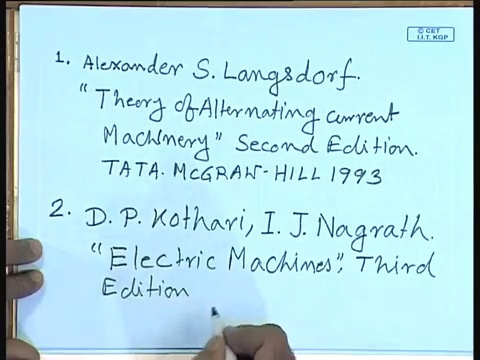 © CET
I.I.T. KGP
1. Alexander S. Langsdorf.
"Theory of Alternating current
Machinery" Second Edition.
TATA. McGRAW-HILL 1993
2. D. P. Kothari, I. J. Nagrath.
"Electric Machines", Third
Edition